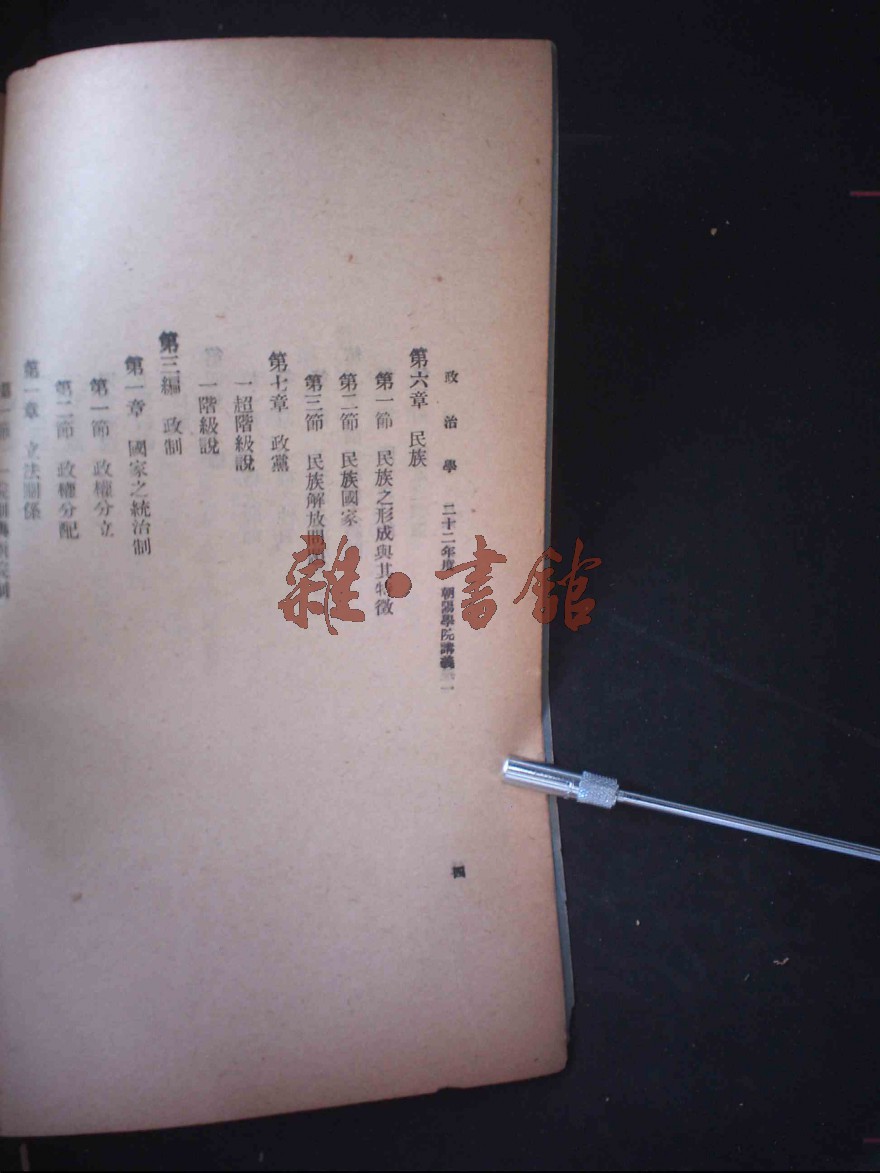 政治學 二十二年度 朝陽學院講義 一
四
第六章 民族
第一節 民族之形成與其特徵
第二節 民族國家
第三節 民族解放問題
第七章 政黨
一超階級說
一階級說
第三編 政制
第一章 國家之統治制
第一節 政權分立
第二節 政權分配
第一章 立法關係
第一節
雜·書館